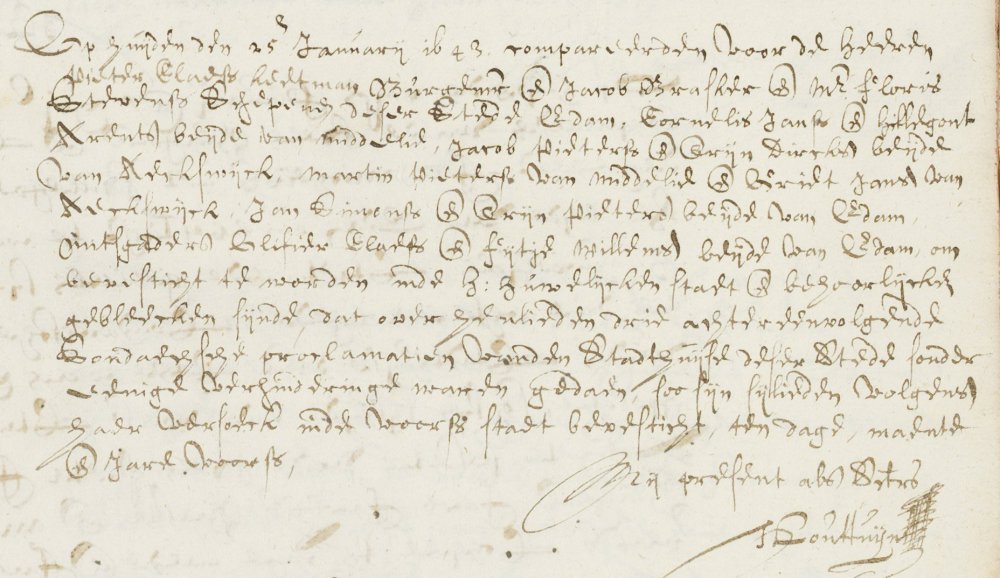 Op huijden den 25 Januarij 1643 compareerden voor de heeren
Pieter Claess keetman Burgemr. en Jacob Brasker en Mr. floris
Stevenss Schepenen deser Stede Edam, Cornelis Janss en hillegont
Arents beijde van middelie, Jacob Pieterss en Trijn Dircks beijde
van Aeckswijck, Martin Pieterss van middelie en Griet Jans van
Aeckswijck, Jan Simonss en Trijn Pieters beijde van Edam,
mitsgaders Olifier Claess en fijtje willems beijde van Edam, om
bevesticht te worden inde h: huwelijcken staet en behoorlijcken
gebleecken sijnde, dat over henlieden drie achtereenvolgende
Sondaechsche proclamatien vanden Stadthuijse deser Stede sonder
eenige verhinderinge waren gedaen, soo sijn sijlieden volgens
haer versoeck inde voorss staet bevesticht, ten dage, maente
en Jare voorss,
Mij present als Secrts
Houttuijn